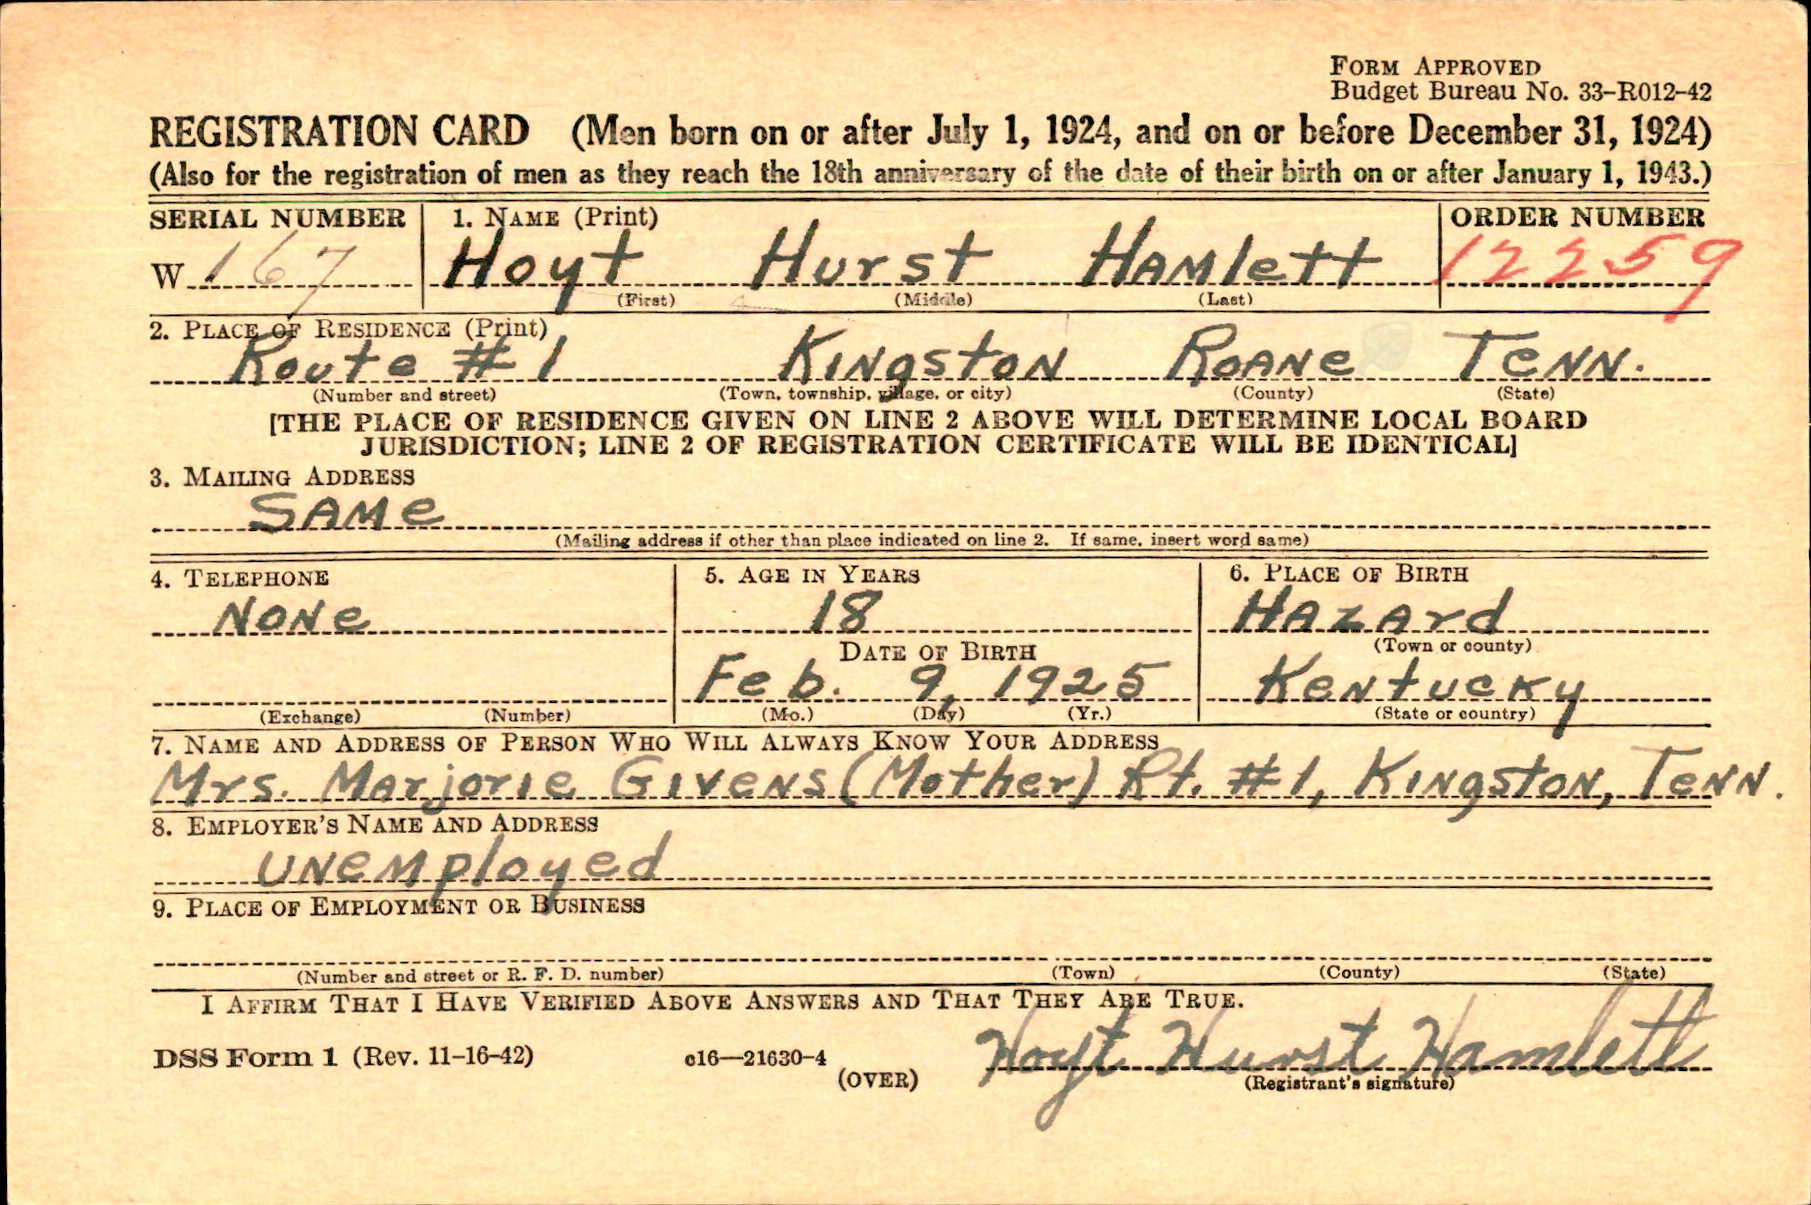 FORM APPROVED
Budget Bureau No. 33-R012-42
REGISTRATION CARD (Men born on or after July 1, 1924, and on or before December 31, 1924)
(Also for the registration of men as they reach the 18th anniversary of the date of their birth on or after January 1, 1943.)
SERIAL NUMBER 1. NAME (Print) ORDER NUMBER
W 167 Hoyt Hurst Hamlett 12259
(First) (Middle) (Last)
2. PLACE OF RESIDENCE (Print)
Route #1 Kingston Roane Tenn.
(Number and street) (Town, township, village, or city) (County) (State)
[THE PLACE OF RESIDENCE GIVEN ON LINE 2 ABOVE WILL DETERMINE LOCAL BOARD
JURISDICTION; LINE 2 OF REGISTRATION CERTIFICATE WILL BE IDENTICAL]
3. MAILING ADDRESS
Same
(Mailing address if other than place indicated on line 2. If same, insert word same)
4. TELEPHONE 5. AGE IN YEARS 6. PLACE OF BIRTH
None 18 Hazard
DATE OF BIRTH (Town or county)
Feb. 9, 1925 Kentucky
(Exchange) (Number) (Mo.) (Day) (Yr.) (State or country)
7. NAME AND ADDRESS OF PERSON WHO WILL ALWAYS KNOW YOUR ADDRESS
Mrs. Marjorie Givens (Mother) Rt. #1, Kingston, Tenn.
8. EMPLOYER'S NAME AND ADDRESS
Unemployed
9. PLACE OF EMPLOYMENT OR BUSINESS
(Number and street or R. F. D. number) (Town) (County) (State)
I AFFIRM THAT I HAVE VERIFIED ABOVE ANSWERS AND THAT THEY ARE TRUE.
DSS Form 1 (Rev. 11-16-42) c16—21630-4 Hoyt Hurst Hamlett
(OVER) (Registrant's signature)